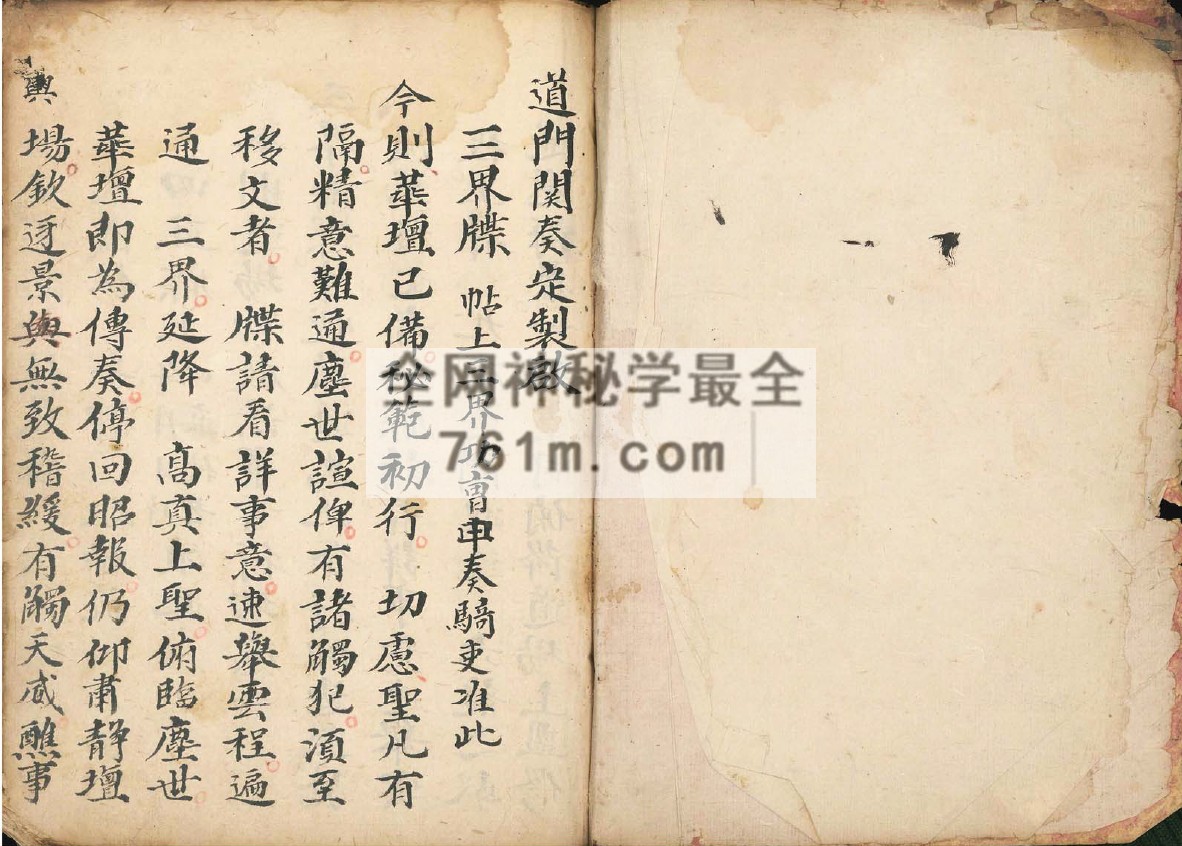 道門関奏定製啟
三界牒 帖上三界功曹申奏騎吏准此
今則華壇已備秘範初行切慮聖凡有
隔精意難通塵世諠俾有諸觸犯須至
移文者 牒請看詳事意速舉雲程遍
通 三界延降 高真上聖俯臨塵世
華壇即為傳奏停回昭報仍仰肅静壇
場欽迓景與無致稽緩有觸天威醮事
輿
全网神秘学最全
761m.com